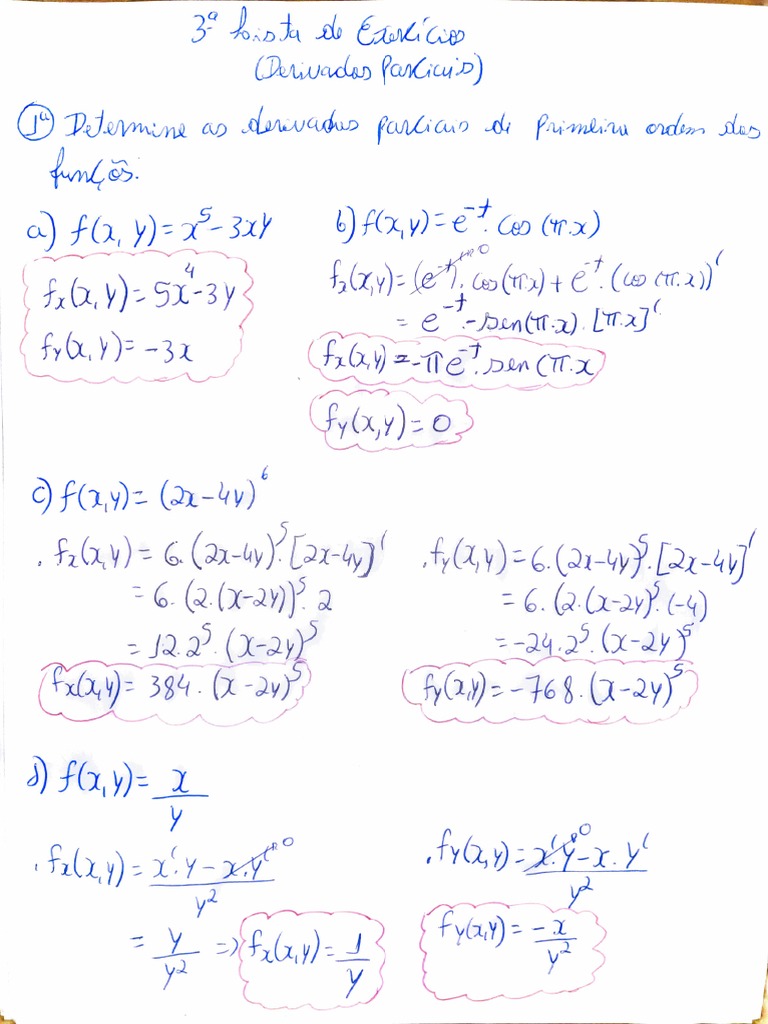 3ª Lista de Exercícios
(Derivadas Parciais)
1ª Determine as derivadas parciais de primeira ordem das
funções:
a) f(x, y) = x⁵ - 3xy
fx(x, y) = 5x⁴ - 3y
fy(x, y) = -3x
b) f(x,y) = e⁻ᵗ · cos (π.x)
fx(x,y) = (e⁻ᵗ)'⁰ · cos(πx) + e⁻ᵗ · (cos (π.x))'
= e⁻ᵗ · -sen(π.x) · [π.x]'
fx(x,y) = -π e⁻ᵗ · sen (π.x
fy(x,y) = 0
c) f(x,y) = (2x - 4y)⁶
. fx(x,y) = 6.(2x-4y)⁵ · [2x-4y]'
= 6.(2.(x-2y))⁵ · 2
= 12.2⁵ . (x-2y)⁵
fx(x,y) = 384 . (x-2y)⁵
. fy(x,y) = 6.(2x-4y)⁵ · [2x-4y]'
= 6.(2.(x-2y)⁵ · (-4)
= -24.2⁵ . (x-2y)⁵
fy(x,y) = -768 . (x-2y)⁵
d) f(x,y) = x/y
. fx(x,y) = x'.y - x.y'⁰ / y²
= y/y² => fx(x,y) = 1/y
. fy(x,y) = x'.y⁰ - x.y' / y²
fy(x,y) = -x/y²